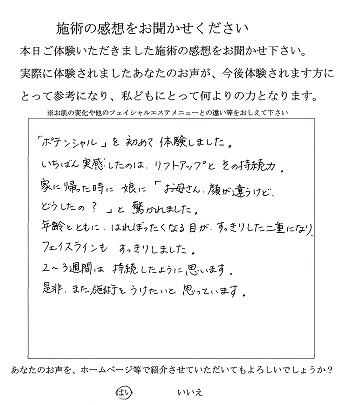 施術の感想をお聞かせください
本日ご体験いただきました施術の感想をお聞かせ下さい。
実際に体験されましたあなたのお声が、今後体験されます方に
とって参考になり、私どもにとって何よりの力となります。
※お肌の変化や他のフェイシャルエステメニューとの違い等をおしえて下さい
「ポテンシャル」を初めて体験しました。
いちばん実感したのは、リフトアップとその持続力。
家に帰った時に娘に「お母さん、顔が違うけど、
どうしたの？」と驚かれました。
年齢とともに、はれぼったくなる目が、すっきりした二重になり
フェイスラインもすっきりしました。
2〜3週間は持続したように思います。
是非、また施術をうけたいと思っています。
あなたのお声を、ホームページ等で紹介させていただいてもよろしいでしょうか？
はい いいえ